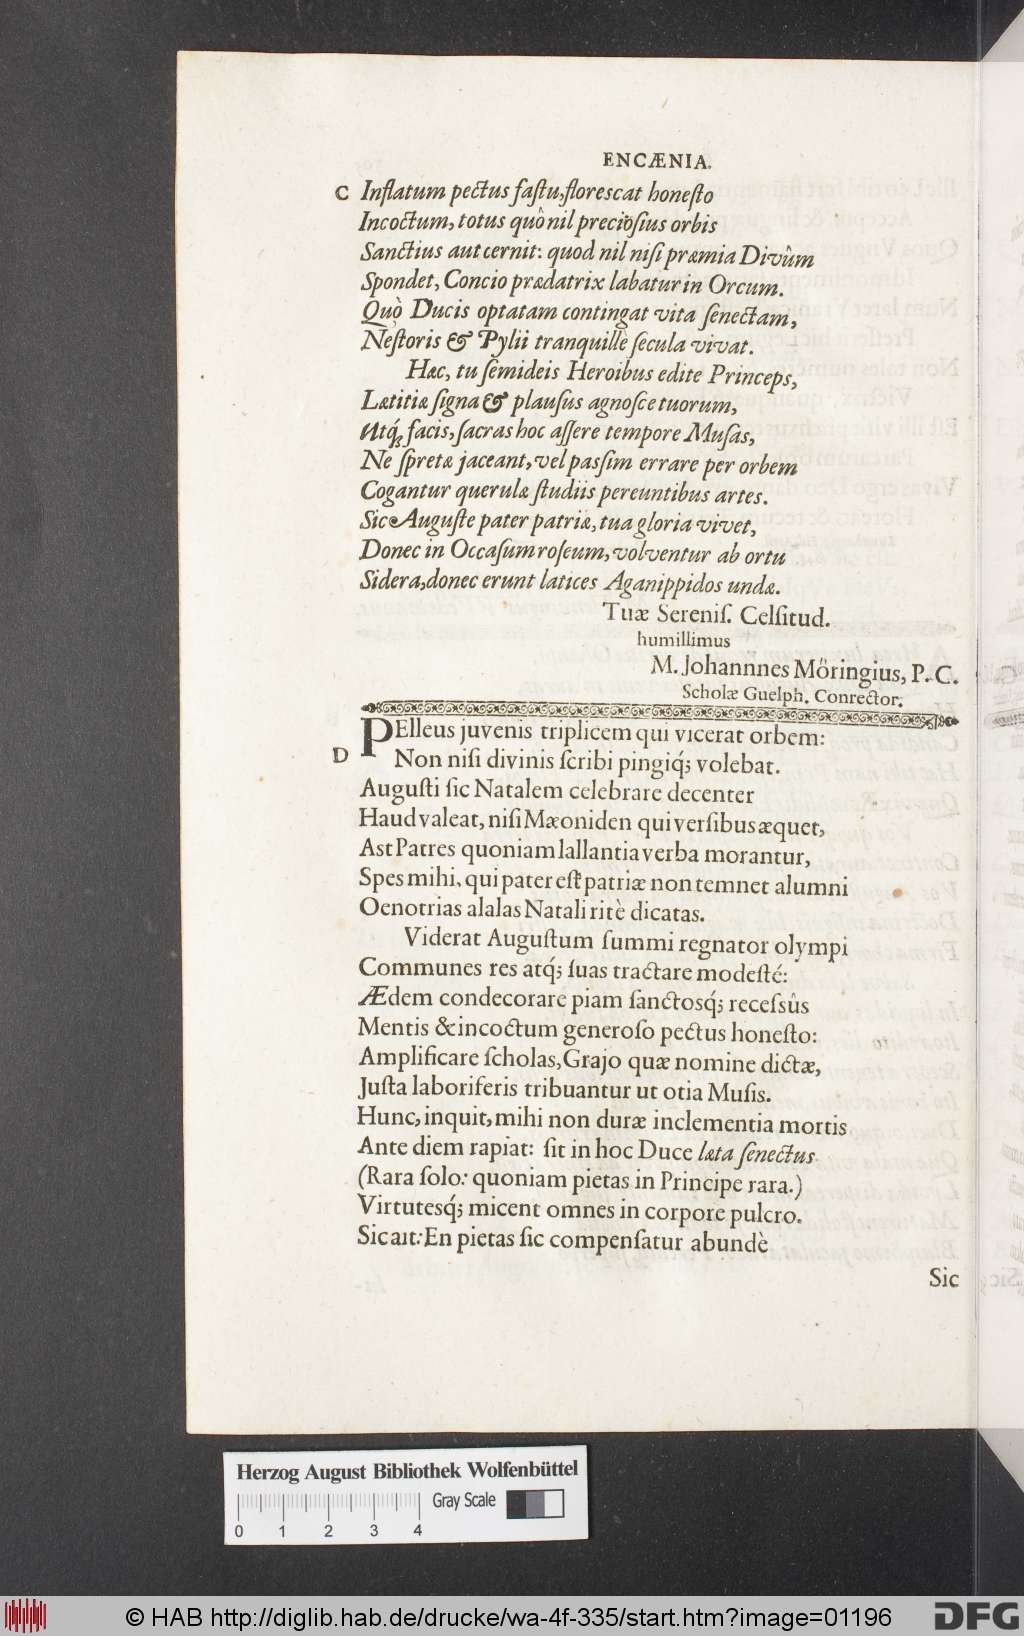 ENCÆNIA.
C Inflatum pectus faſtu, floreſcat honeſto
Incoctum, totus quô nil precioſius orbis
Sanctius aut cernit: quod nil niſi præmia Divûm
Spondet, Concio prædatrix labatur in Orcum.
Quò Ducis optatam contingat vita ſenectam,
Neſtoris & Pylii tranquillè ſecula vivat.
Hæc, tu ſemideis Heroibus edite Princeps,
Lætitiæ ſigna & plauſus agnoſce tuorum,
Utq́; facis, ſacras hoc aſſere tempore Muſas,
Ne ſpretæ jaceant, vel paſsim errare per orbem
Cogantur querulæ ſtudiis pereuntibus artes.
Sic Auguſte pater patriæ, tua gloria vivet,
Donec in Occaſum roſeum, volventur ab ortu
Sidera, donec erunt latices Aganippidos undæ.
Tuæ Sereniſ. Celſitud.
humillimus
M. Johannnes Möringius, P. C.
Scholæ Guelph. Conrector.
PElleus juvenis triplicem qui vicerat orbem:
D Non niſi divinis ſcribi pingiq́; volebat.
Auguſti ſic Natalem celebrare decenter
Haud valeat, niſi Mæoniden qui verſibus æquet,
Ast Patres quoniam lallantia verba morantur,
Spes mihi, qui pater eſt patriæ non temnet alumni
Oenotrias alalas Natali ritè dicatas.
Viderat Auguſtum ſummi regnator olympi
Communes res atq́; ſuas tractare modeſté:
Ædem condecorare piam ſanctosq́; receſsûs
Mentis & incoctum generoſo pectus honeſto:
Amplificare ſcholas, Grajo quæ nomine dictæ,
Juſta laboriferis tribuantur ut otia Muſis.
Hunc, inquit, mihi non duræ inclementia mortis
Ante diem rapiat: ſit in hoc Duce læta ſenectus
(Rara ſolo: quoniam pietas in Principe rara.)
Virtutesq́; micent omnes in corpore pulcro.
Sic ait: En pietas ſic compenſatur abundè
Sic
Herzog August Bibliothek Wolfenbüttel
Gray Scale
0 1 2 3 4
© HAB http://diglib.hab.de/drucke/wa-4f-335/start.htm?image=01196
DFG